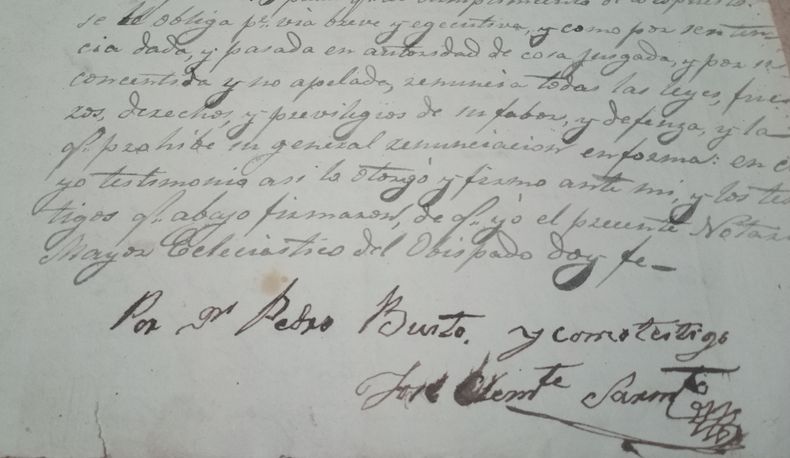 cumplimiento de lo
se le obliga pr. via breve y egecutiva, y como por senten
cia dada, y pasada en autoridad de cosa jusgada, y por
concentida y no apelada, renuncia todas las leyes, fue
ros, derechos, y previligios de su fabor, y defenza, y la
qe. prohibe su general renunciacion en forma: en
yo testimonio asi lo otorgó y firmo ante mi, y los tes
tigos qe. abajo firmaron, de qe. yó el precente Notar
Mayor Eclesiastico del Obispado doy fe—
Por Dn. Pedro Busto. y como testigo
José Clemte Sarmto